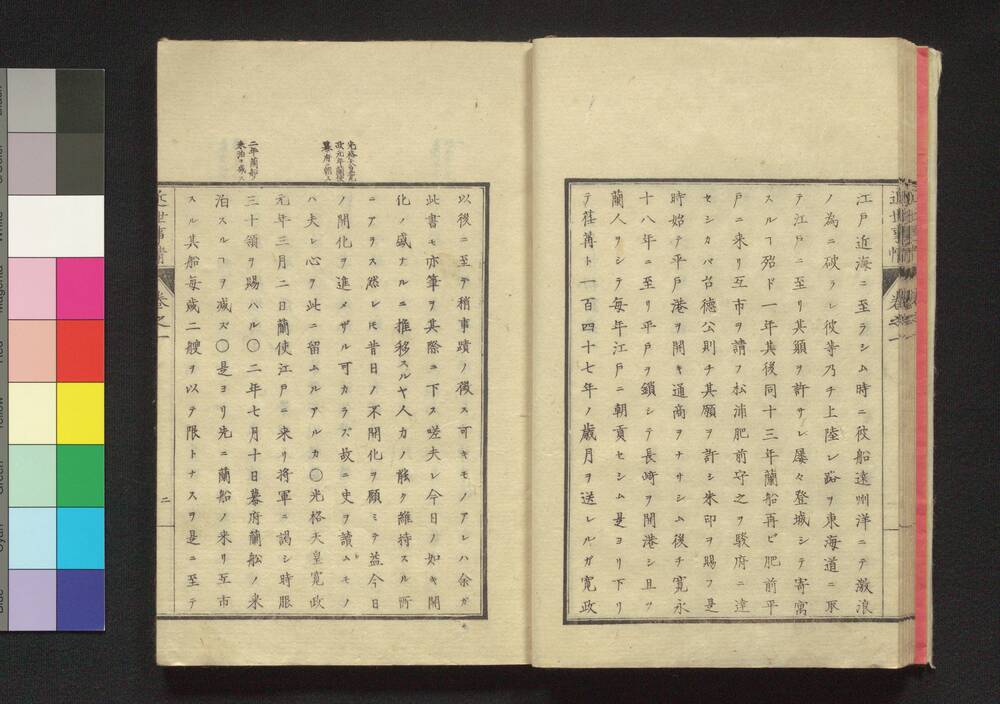 江戸近海ニ至ラシム時ニ彼船遠州洋ニテ激浪
ノ為ニ破ラレ彼等乃チ上陸シ路ヲ東海道ニ取
テ江戸ニ至リ其願ヲ許サレ屡々登城シテ寄寓
スルヿ殆ド一年其後同十三年蘭船再ビ肥前平
戸ニ来リ互市ヲ請フ松浦肥前守之ヲ駿府ニ達
セシカバ台徳公則チ其願ヲ許シ朱印ヲ賜フ是
時始テ平戸港ヲ開キ通商ヲナサシム後チ寛永
十八年ニ至リ平戸ヲ鎖シテ長崎ヲ開港シ且ツ
蘭人ヲシテ毎年江戸ニ朝貢セシム是ヨリ下リ
テ荏苒ト一百四十七年ノ歳月ヲ送レルガ寛政
近世事情
巻之一
以後ニ至テ稍事蹟ノ後ス可キモノアレハ余ガ
此書モ亦筆ヲ其際ニ下ス嗟夫レ今日ノ如キ開
化ノ盛ナルニ推移スルヤ人力ノ能ク維持スル所
ニアラス然レ𪜈昔日ノ不開化ヲ顧ミテ益今日
ノ開化ヲ進メザル可カラズ故ニ史ヲ読ムモノ
ハ夫レ心ヲ此ニ留ムルアルカ〇光格天皇寛政
元年三月二日蘭使江戸ニ来リ将軍ニ謁シ時服
三十領ヲ賜ハル〇二年七月十日幕府蘭舩ノ来
泊スルヿヲ減ズ〇是ヨリ先ニ蘭船ノ来リ互市
スル其船毎歳二艘ヲ以テ限トナスヲ是ニ至テ
光格天皇寛
政元年蘭使
幕府ニ朝ス
二年蘭船
来泊ヲ減ス
近世事情
巻之一
二